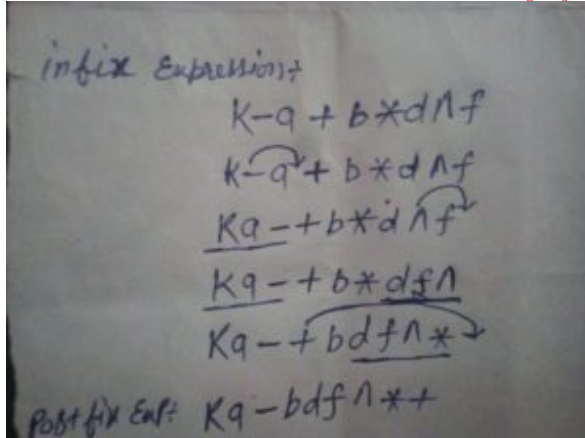 infix Expression:
K-a + b*d^f
K-a + b*d^f
Ka-+b*d^f
Ka-+b*df^
Ka-+bdf^*
Postfix Exp: Ka-bdf^*+